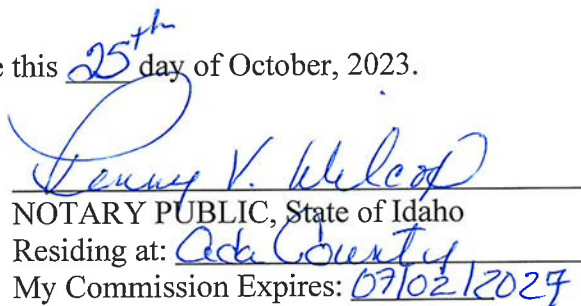 e this 25th day of October, 2023.
Penny V. Wilcox
NOTARY PUBLIC, State of Idaho
Residing at: Ada County
My Commission Expires: 07/02/2027